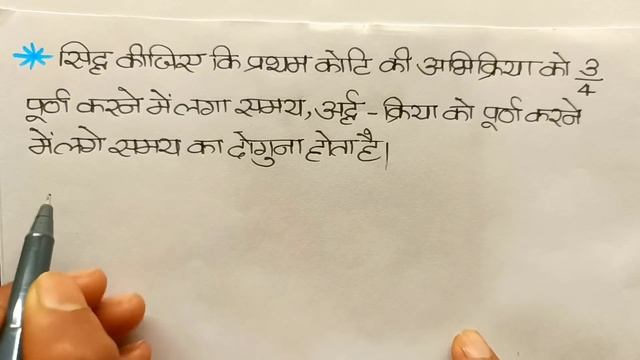 * सिद्ध कीजिए कि प्रथम कोटि की अभिक्रिया को 3/4
पूर्ण करने में लगा समय, अर्द्ध - क्रिया को पूर्ण करने
में लगे समय का दोगुना होता है।